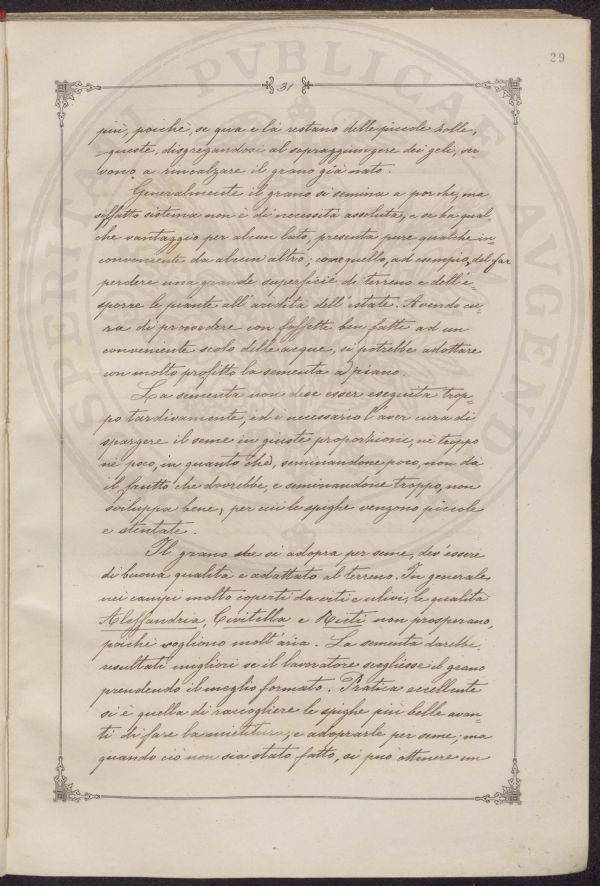 29
31
più, poichè, se qua e là restano delle piccole bolle,
queste, disgregandosi al sopraggiungere dei geli, ser-
vono a rincalzare il grano già nato.
Generalmente il grano si semina a porche, ma
siffatto sistema non è di necessità assoluta, e se ha qual-
che vantaggio per alcun lato, presenta pure qualche in-
conveniente da alcun altro; come quello, ad esempio, del far
perdere una grande superficie di terreno e dell'e-
sporre le piante all'aridità dell'estate. Avendo cu-
ra di provvedere con fossette ben fatte ad un
conveniente scolo delle acque, si potrebbe adottare
con molto profitto la sementa a piano.
La sementa non deve esser eseguita trop-
po tardivamente, ed è necessario l'aver cura di
spargere il seme in giuste proporzioni, nè troppo
nè poco, in quanto che, seminandone poco, non dà
il frutto che dovrebbe, e seminandone troppo, non
sviluppa bene, per cui le spighe vengono piccole
e stentate.
Il grano che si adopra per seme, dev'essere
di buona qualità e adattato al terreno. In generale,
nei campi molto coperti da viti e ulivi, le qualità
Alessandria, Civitella e Rieti non prosperano,
poichè vogliono molt'aria. La sementa darebbe
resultati migliori se il lavoratore scegliesse il grano
prendendo il meglio formato. Pratica eccellente
si è quella di raccogliere le spighe più belle avan-
ti di fare la mietitura, e adoprarle per seme; ma
quando ciò non sia stato fatto, si può ottenere un
PVBLICAE
AVGENDO
SPERITATI